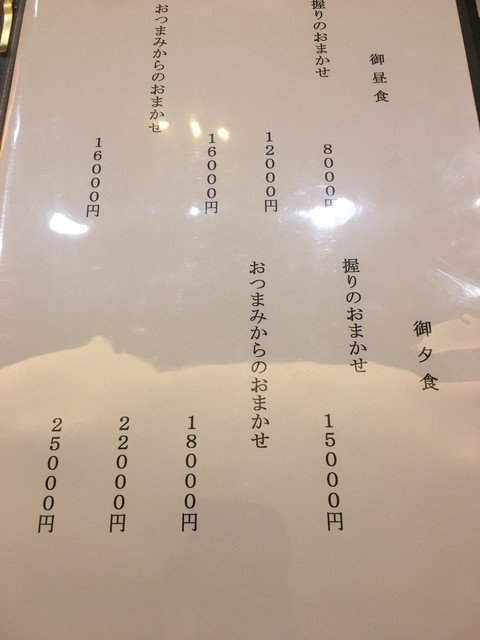 御昼食
握りのおまかせ
8000円
12000円
16000円
おつまみからのおまかせ
16000円
御夕食
握りのおまかせ
15000円
おつまみからのおまかせ
18000円
22000円
25000円